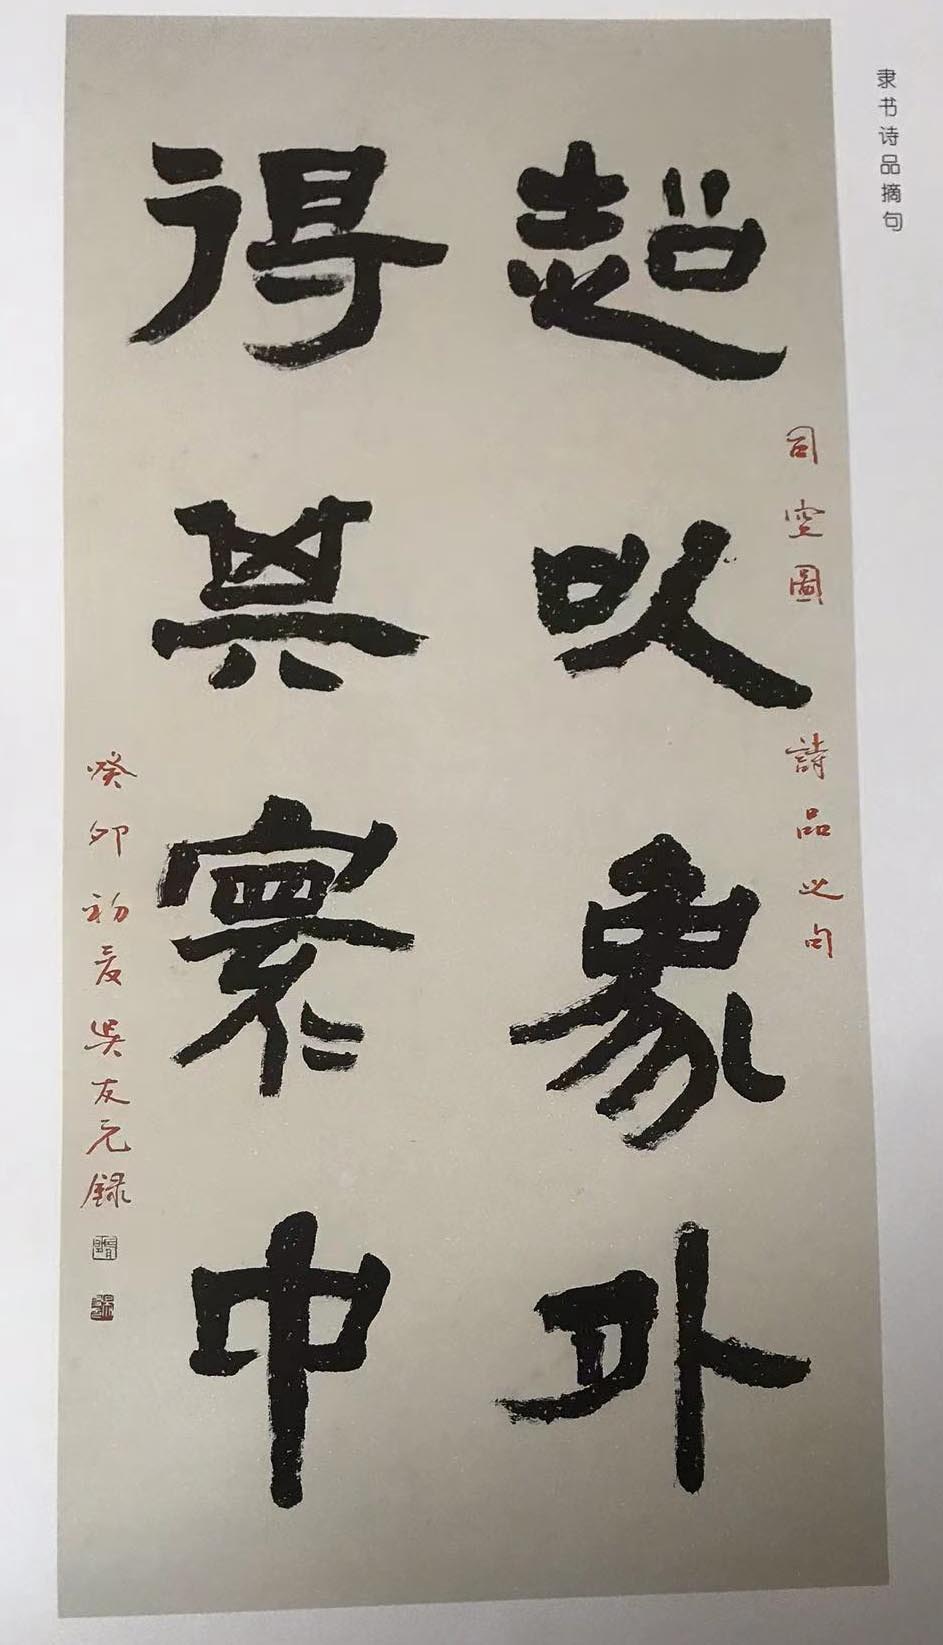 隶书诗品摘句
超以象外
得其寰中
司空圖
詩品之句
癸卯初夏吴友元録